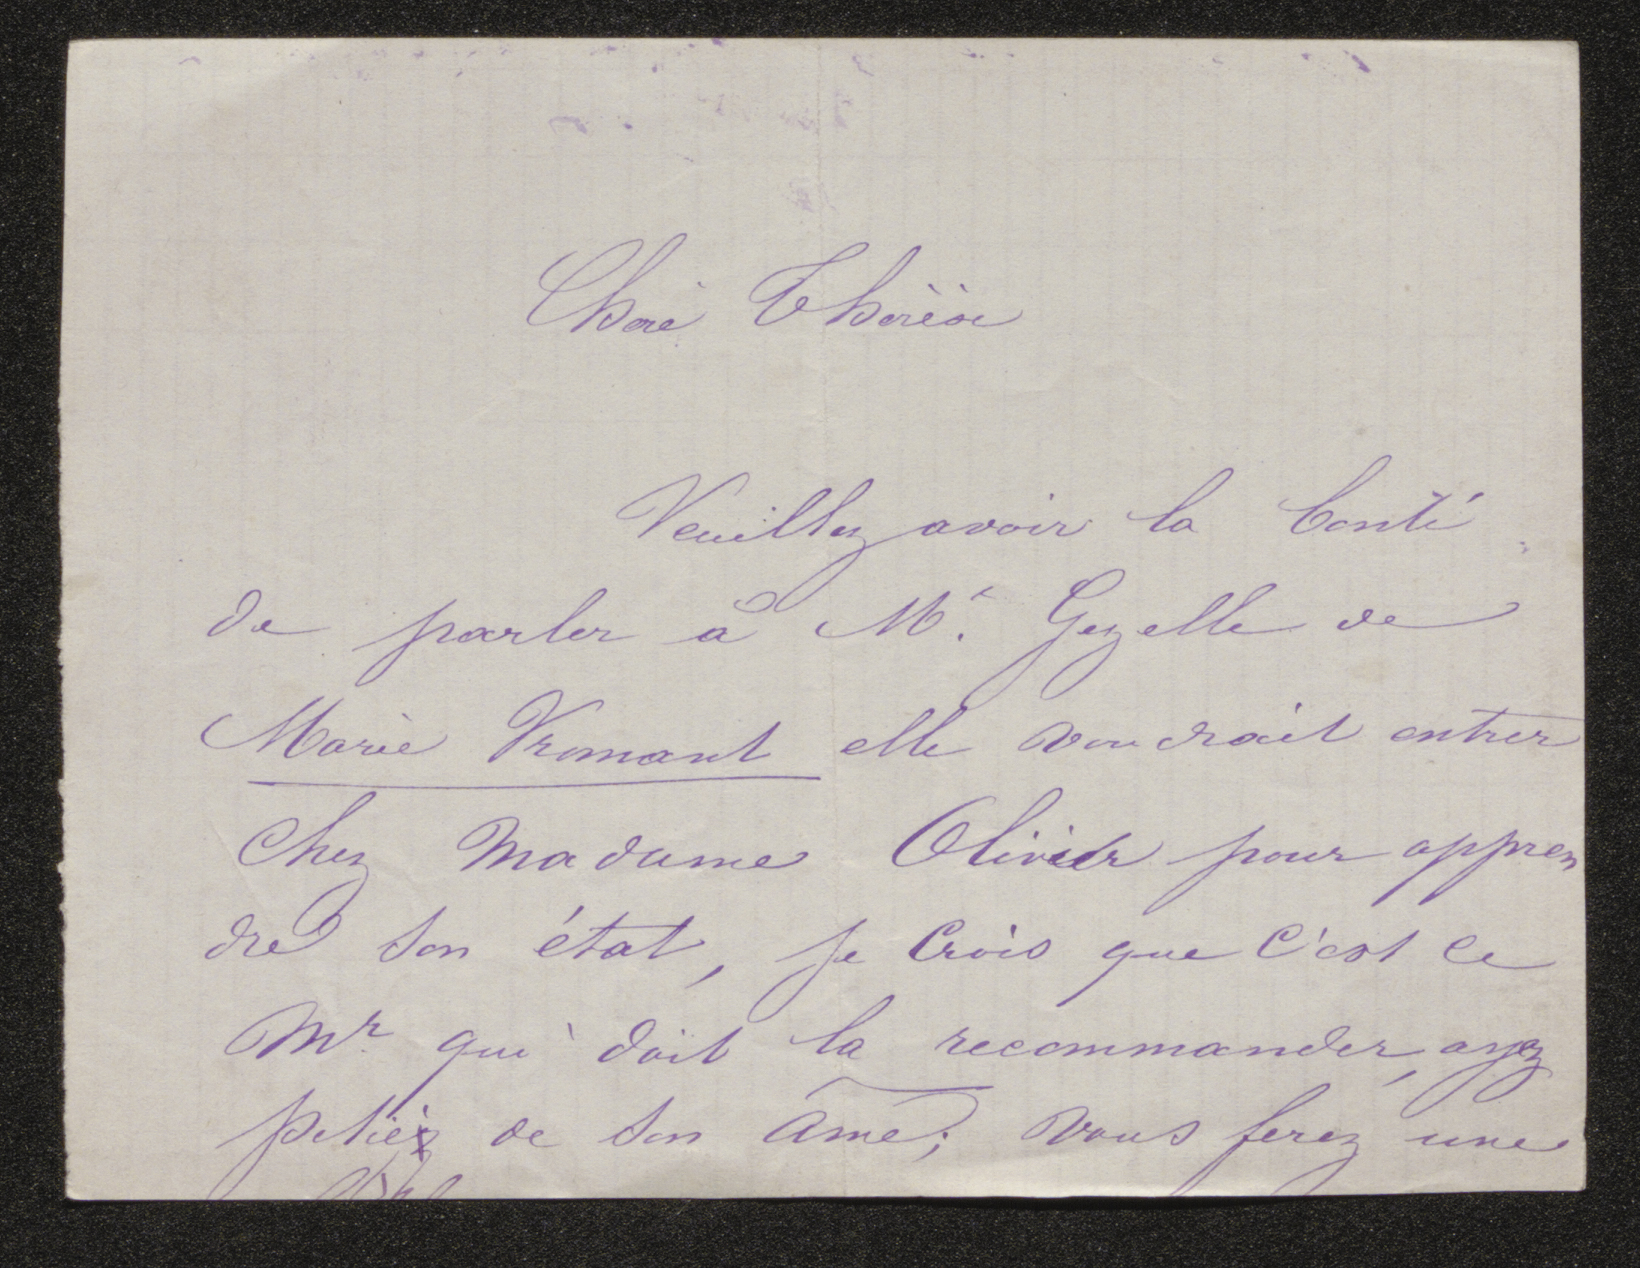 Chère Thérèse
Veuillez avoir la bonté
de parler à Mr. Gezelle de
Marie Vromant elle voudrait entrer
chez Madame Olivier pour appren
dre son état, je crois que c'est ce
Mr qui doit la recommander, ayez
pitiéz de son âme; vous ferez une